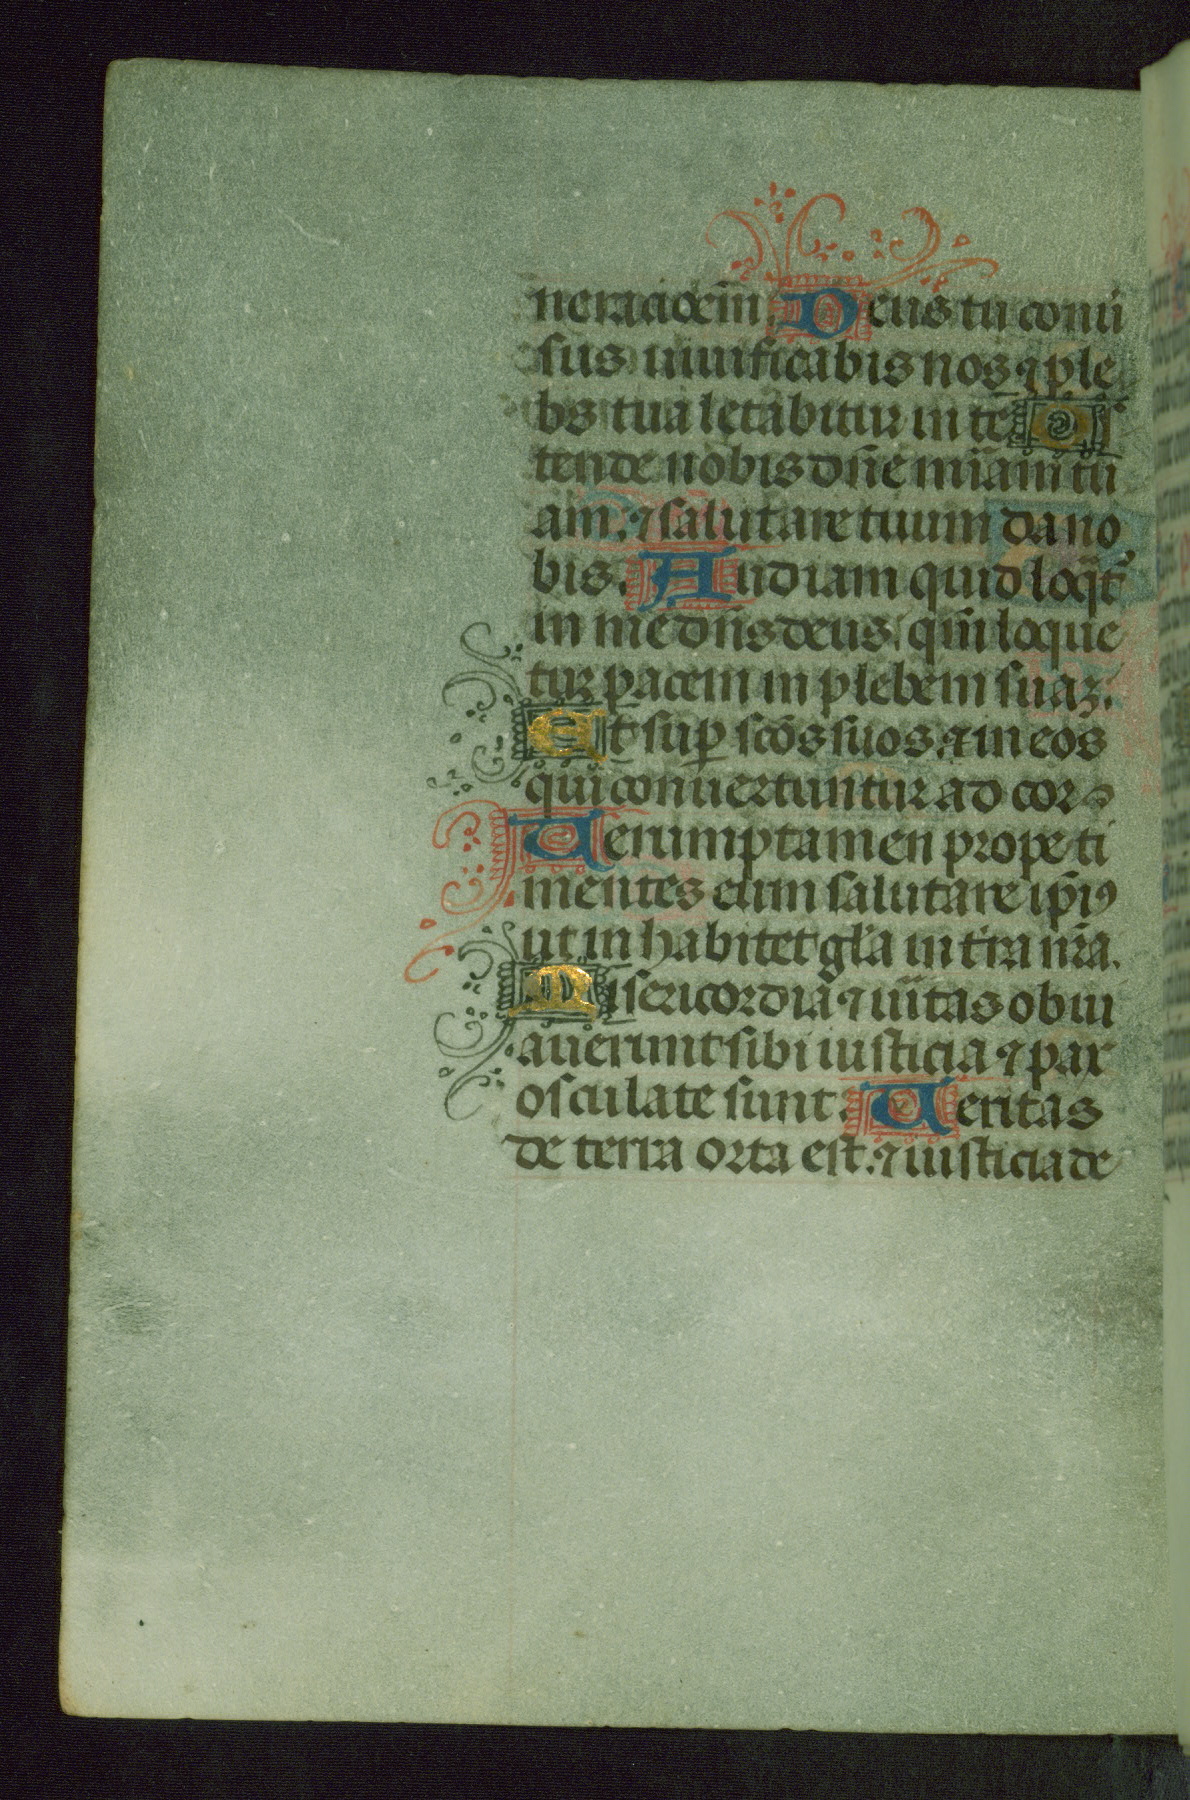 neracioēm. Deus tu conu̇
sus uiuificabis nos ⁊ ple
bs tua letabitur in te Os
tende nobis dn̄e mīam tu
am. ⁊ salutare tuum da no
bis. Audiam quid loq̄t᷑
in me dn̄s deus qm̄ loque
tur pacem in plebem suaꝫ.
Et suꝑ scōs suos. ⁊ in eos
qui conuertuntur ad cor
Uerumptamen prope ti
mentes eum salutare ip̄iꝰ
ut in habitet gl̄a in t̄ra nr̄a.
Misericordia ⁊ uĩtas obui
auerunt sibi iusticia ⁊ pax
osculate sunt. Ueritas
de terra orta est. ⁊ iusticia de